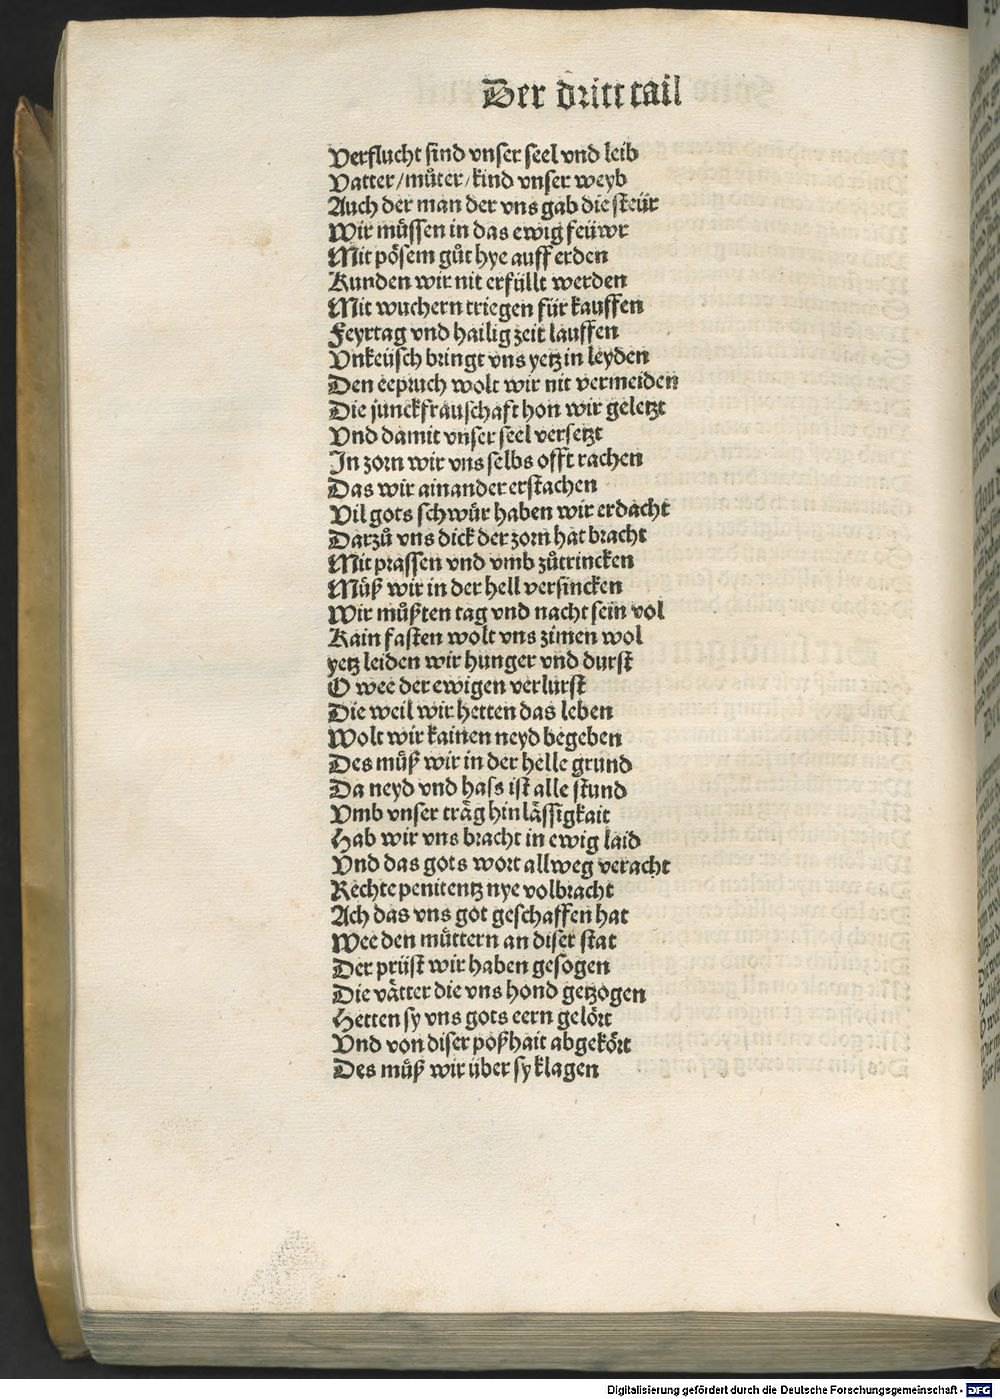 Der dritt tail
Verflucht sind vnser seel vnd leib
Vatter/můter/kind vnser weyb
Auch der man der vns gab die steür
Wir müssen in das ewig feüwr
Mit pösem gůt hye auff erden
Kunden wir nit erfüllt werden
Mit wuchern triegen für kauffen
Feyrtag vnd hailig zeit lauffen
Vnkeüsch bringt vns yetz in leyden
Den eepruch wolt wir nit vermeiden
Die junckfrauschaft hon wir geletzt
Vnd damit vnser seel versetzt
In zorn wir vns selbs offt rachen
Das wir ainander erstachen
Vil gots schwůr haben wir erdacht
Darzů vns dick der zorn hat bracht
Mit prassen vnd vmb zůtrincken
Müß wir in der hell versincken
Wir můßten tag vnd nacht sein vol
Kain fasten wolt vns zimen wol
yetz leiden wir hunger vnd durst
O wee der ewigen verlurst
Die weil wir hetten das leben
Wolt wir kainen neyd begeben
Des müß wir in der helle grund
Da neyd vnd hass ist alle stund
Vmb vnser träg hinlässigkait
Hab wir vns bracht in ewig laid
Vnd das gots wort allweg veracht
Rechte penitentz nye volbracht
Ach das vns got geschaffen hat
Wee den müttern an diser stat
Der prüst wir haben gesogen
Die vätter die vns hond getzogen
Hetten sy vns gots eern gelört
Vnd von diser poßhait abgekört
Des müß wir über sy klagen
Digitalisierung gefördert durch die Deutsche Forschungsgemeinschaft - DFG